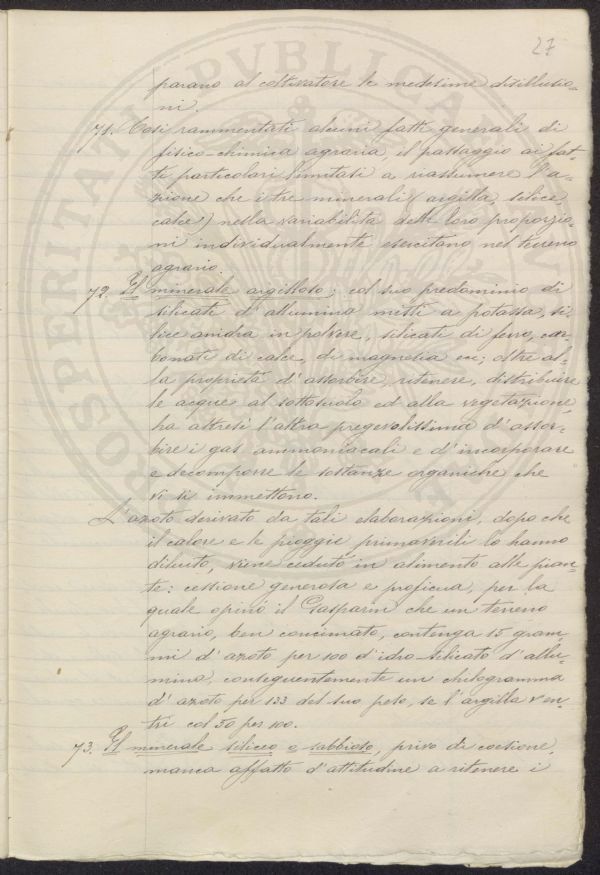 27
parano al coltivatore le medesime disillusio-
ni.
71. Così rammentati alcuni fatti generali di
fisico-chimica agraria, il passaggio ai fat-
ti particolari limitasi a riassumere l'a-
zione che i tre minerali (argilla, selice,
calce) nella variabilità delle loro proporzio-
ni individualmente esercitano nel terreno
agrario.
72. Il minerale argilloso; col suo predominio di
silicati d'allumina misti a potassa, si-
lice anidra in polvere, silicati di ferro, car-
bonati di calce, di magnesia ecc; oltre al-
la proprietà d'assorbire, ritenere, distribuire
le acque al sottosuolo ed alla vegetazione,
ha altresì l'altra pregevolissima d'assor-
bire i gas ammoniacali e d'incorporare
e decomporre le sostanze organiche che
vi si immettono.
L'azoto derivato da tali elaborazioni, dopo che
il calore e le pioggie primaverili lo hanno
diluito, viene ceduto in alimento alle pian-
te: cessione generosa e proficua, per la
quale opinò il Gasparin che un terreno
agrario, ben concimato, contenga 15 gram-
mi d'azoto per 100 d'idro-silicato d'allu-
mina, conseguentemente un chilogramma
d'azoto per 133 del suo peso, se l'argilla v'en-
tri col 50 per 100.
73. Il minerale siliceo e sabbioso, privo di coesione,
manca affatto d'attitudine a ritenere i
PROSPERITATI PVBLICAE